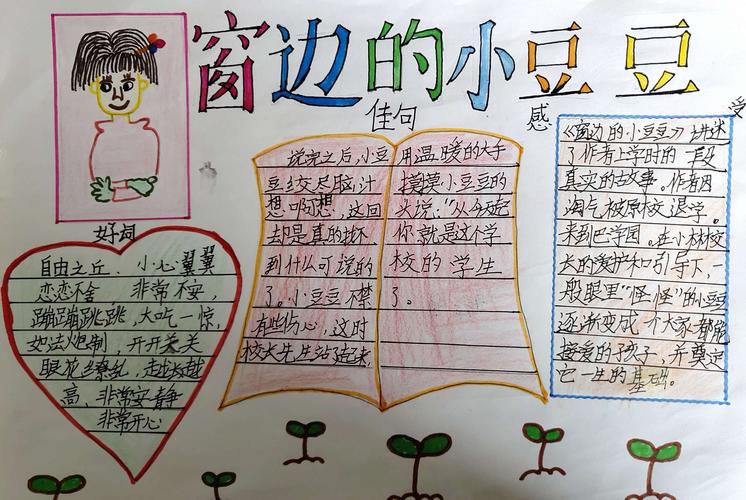 窗边的小豆豆
佳句
感受
好词
自由之丘、小心翼翼
恋恋不舍 非常不安,
蹦蹦跳跳,大吃一惊,
如法炮制,开开关关
眼花缭乱,越长越
高、非常安静
非常开心
说完之后,小豆
豆绞尽脑汁
想啊想,这回
却是真的找不
到什么可说的
了。小豆豆不禁
有些伤心,这时
校长先生站了起来,
用温暖的大手
摸摸小豆豆的
头说:“从今天起
你就是这个学
校的学生
了。
《窗边的小豆豆》讲述
了作者上学时的一段
真实的故事。作者因
淘气被原校退学。
来到巴学园。在小林校
长的爱护和引导下,一
般眼里“怪怪”的小豆豆
逐渐变成一个大家都能
接受的孩子,并奠定
它一生的基础。